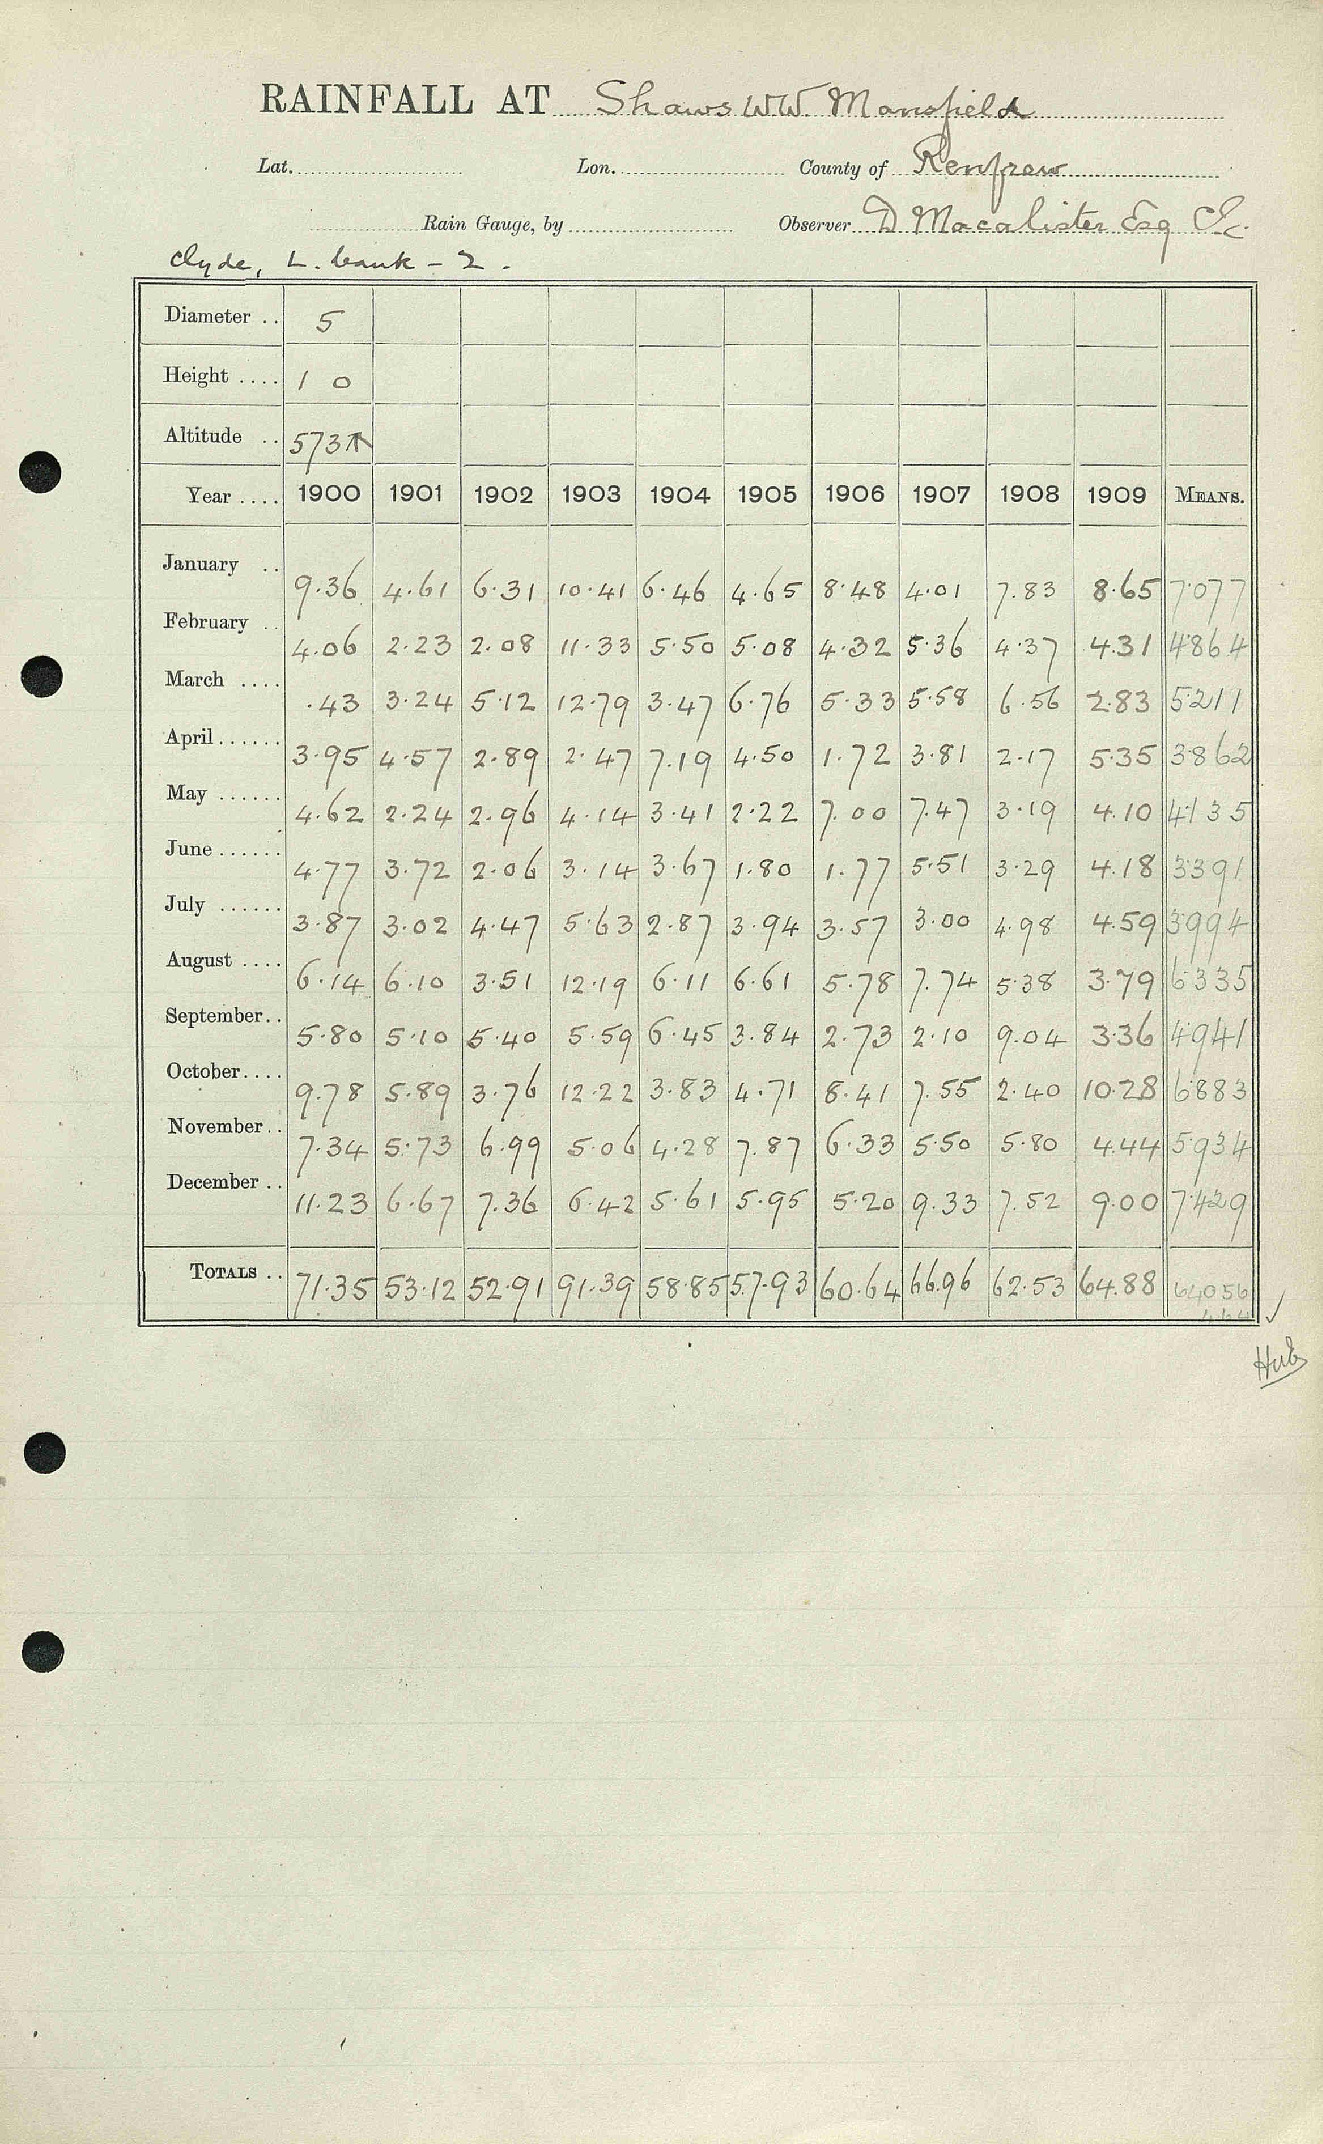 RAINFALL AT Shaws W.W. Mansfield
Lat. Lon. County of Renfrew
Rain Gauge, by Observer D Macalister Esq C.E.
Clyde, L. bank - 2.
Diameter .. 5
Height .... 1 0
Altitude .. 573
Year .... 1900 1901 1902 1903 1904 1905 1906 1907 1908 1909 MEANS.
January .. 9.36 4.61 6.31 10.41 6.46 4.65 8.48 4.01 7.83 8.65 7.077
February .. 4.06 2.23 2.08 11.33 5.50 5.08 4.32 5.36 4.37 4.31 4864
March .... .43 3.24 5.12 12.79 3.47 6.76 5.33 5.58 6.56 2.83 5211
April ...... 3.95 4.57 2.89 2.47 7.19 4.50 1.72 3.81 2.17 5.35 3862
May ...... 4.62 2.24 2.96 4.14 3.41 2.22 7.00 7.47 3.19 4.10 4135
June ...... 4.77 3.72 2.06 3.14 3.67 1.80 1.77 5.51 3.29 4.18 3391
July ...... 3.87 3.02 4.47 5.63 2.87 3.94 3.57 3.00 4.98 4.59 3994
August .... 6.14 6.10 3.51 12.19 6.11 6.61 5.78 7.74 5.38 3.79 6335
September.. 5.80 5.10 5.40 5.59 6.45 3.84 2.73 2.10 9.04 3.36 4941
October.... 9.78 5.89 3.76 12.22 3.83 4.71 8.41 7.55 2.40 10.28 6883
November .. 7.34 5.73 6.99 5.06 4.28 7.87 6.33 5.50 5.80 4.44 5934
December .. 11.23 6.67 7.36 6.42 5.61 5.95 5.20 9.33 7.52 9.00 7429
TOTALS .. 71.35 53.12 52.91 91.39 58.85 57.93 60.64 66.96 62.53 64.88 64056